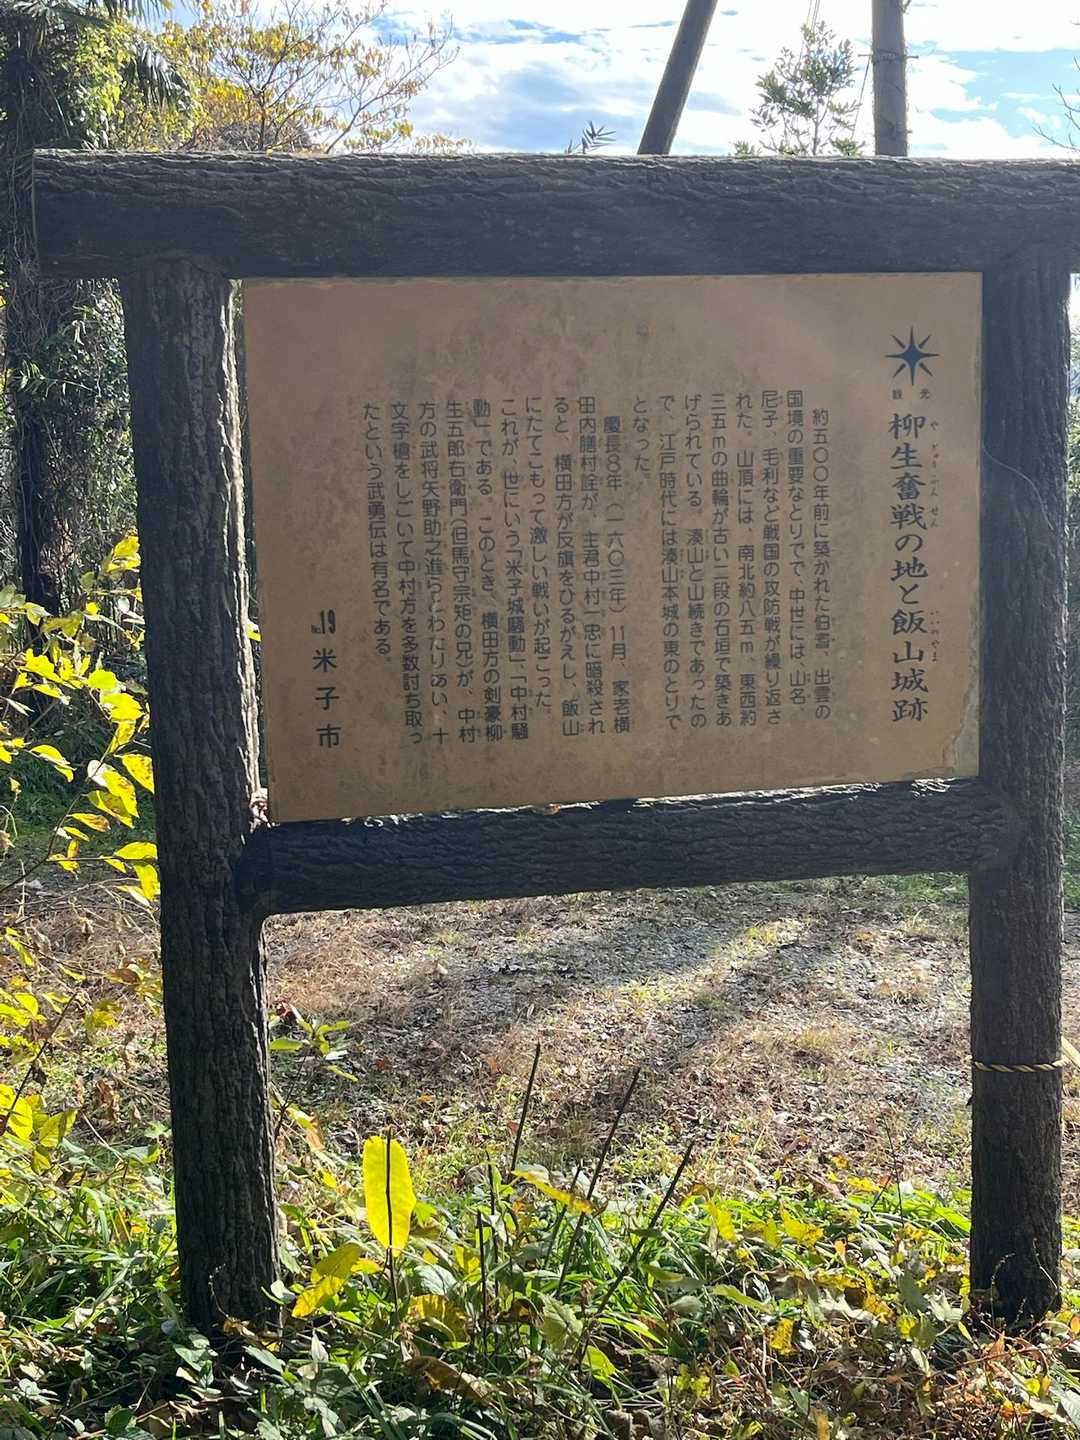 柳生奮戦の地と飯山城跡
やぎゅうふんせん
いいのやま
約五〇〇年前に築かれた伯耆、出雲の
国境の重要なとりでで、中世には、山名、
尼子、毛利など戦国の攻防戦が繰り返さ
れた。山頂には、南北約八五m、東西約
三五mの曲輪が古い二段の石垣で築きあ
げられている。湊山と山続きであったの
で、江戸時代には湊山本城の東のとりで
となった。
慶長8年（一六〇三年）11月、家老横
田内膳村詮が、主君中村一忠に暗殺され
ると、横田方が反旗をひるがえし、飯山
にたてこもって激しい戦いが起こった。
これが、世にいう「米子城騒動」、「中村騒
動」である。このとき、横田方の剣豪柳
生五郎右衛門（但馬守宗矩の兄）が、中村
方の武将矢野助之進らとわたりあい、十
文字槍をしごいて中村方を多数討ち取っ
たという武勇伝は有名である。
No.19 米子市